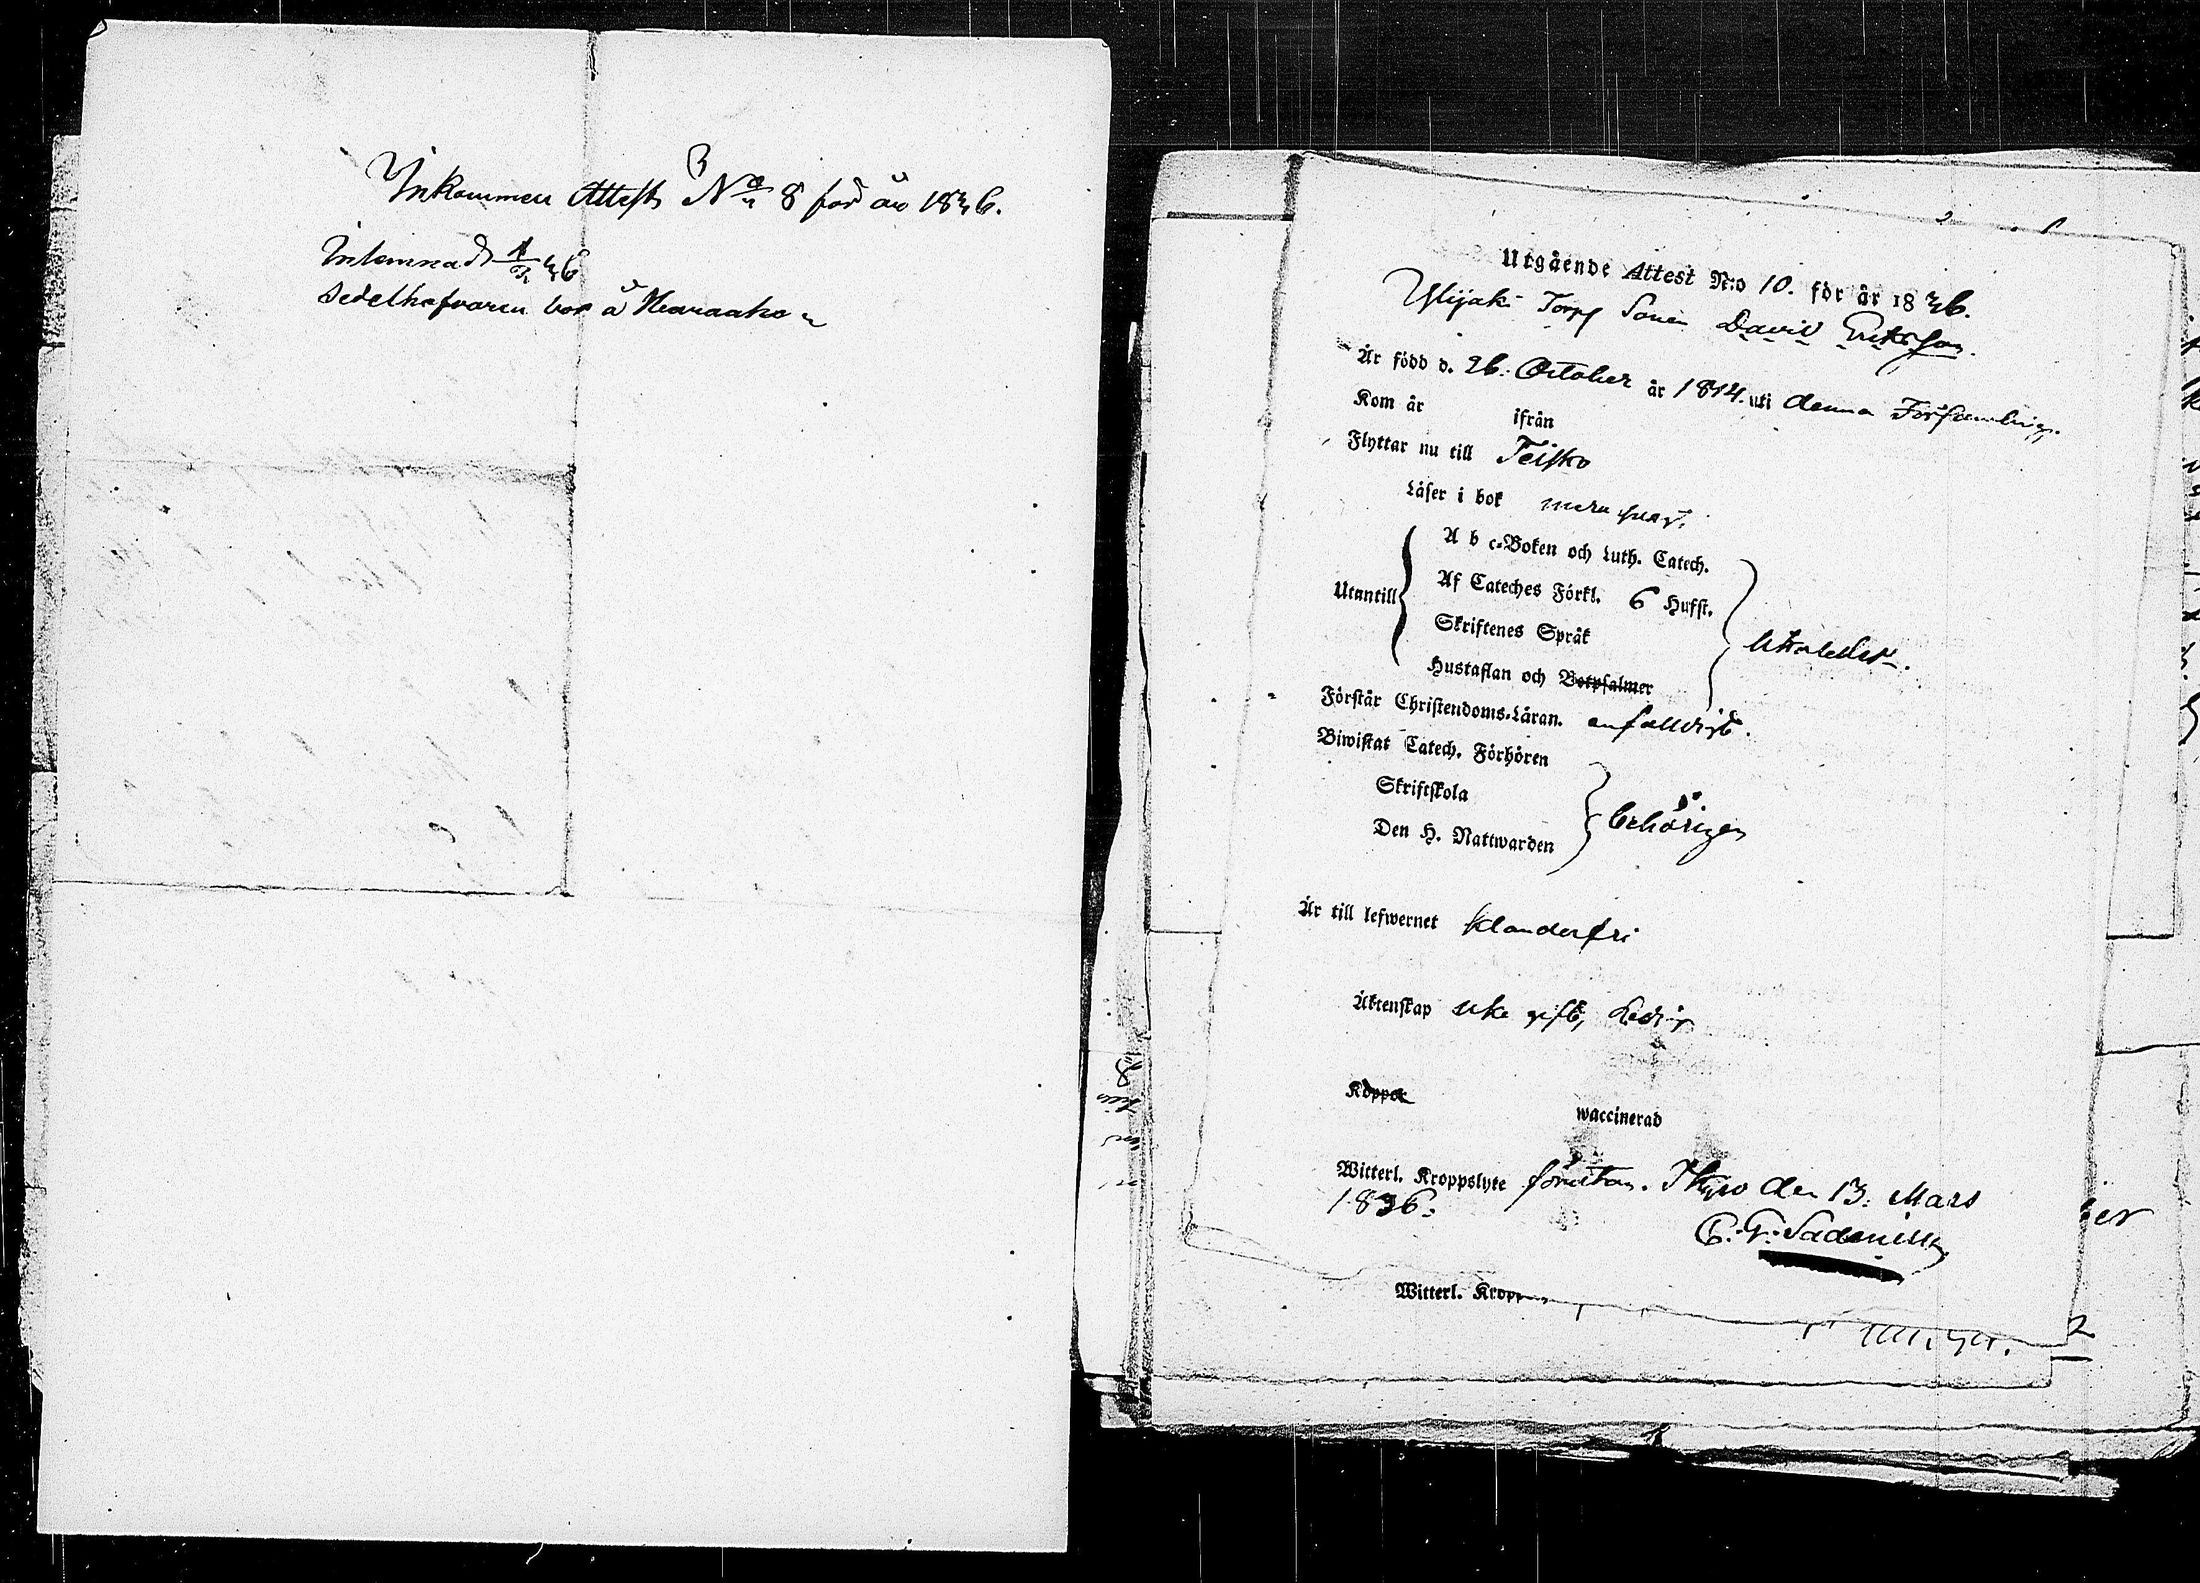 Inkommen Attest No 8 för år 1836.
Inlemnad 36
Sedelhafvaren bor å
Utgående Attest N:o 10. för år 1836.
Ylijaki Torp Sonen David Eriksson.
Är född d. 26. October år 1814. uti denna Församling.
Kom år ifrån
Flyttar nu till Teisko
Läser i bok
A b c-Boken och Luth. Catech.
Utantill Af Cateches Förkl. 6 Hufst.
Skriftenes Språk
Hustaflan och Botpsalmer
Förstår Christendoms-Läran. enfalldigt.
Biwistat Catech. Förhören
Skriftskola
Den H. Nattwarden behörigen
Är till lefwernet klanderfri
Äktenskap icke gift, Ledig
Koppor waccinerad
Witterl. Kroppslyte förutan. Ikyro den 13. Mars
1836.
Witterl. Kropp